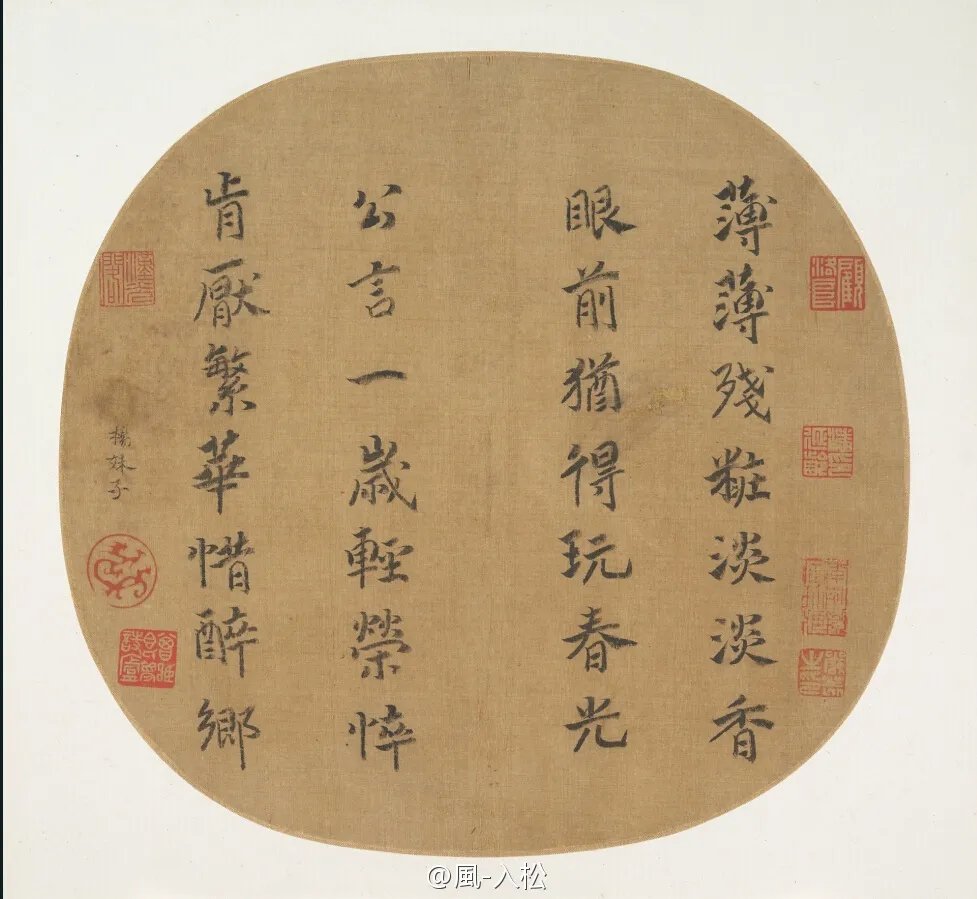 薄薄殘粧淡淡香
眼前猶得玩春光
公言一歲輕榮悴
肯厭繁華惜醉鄉
楊妹子
@風-入松